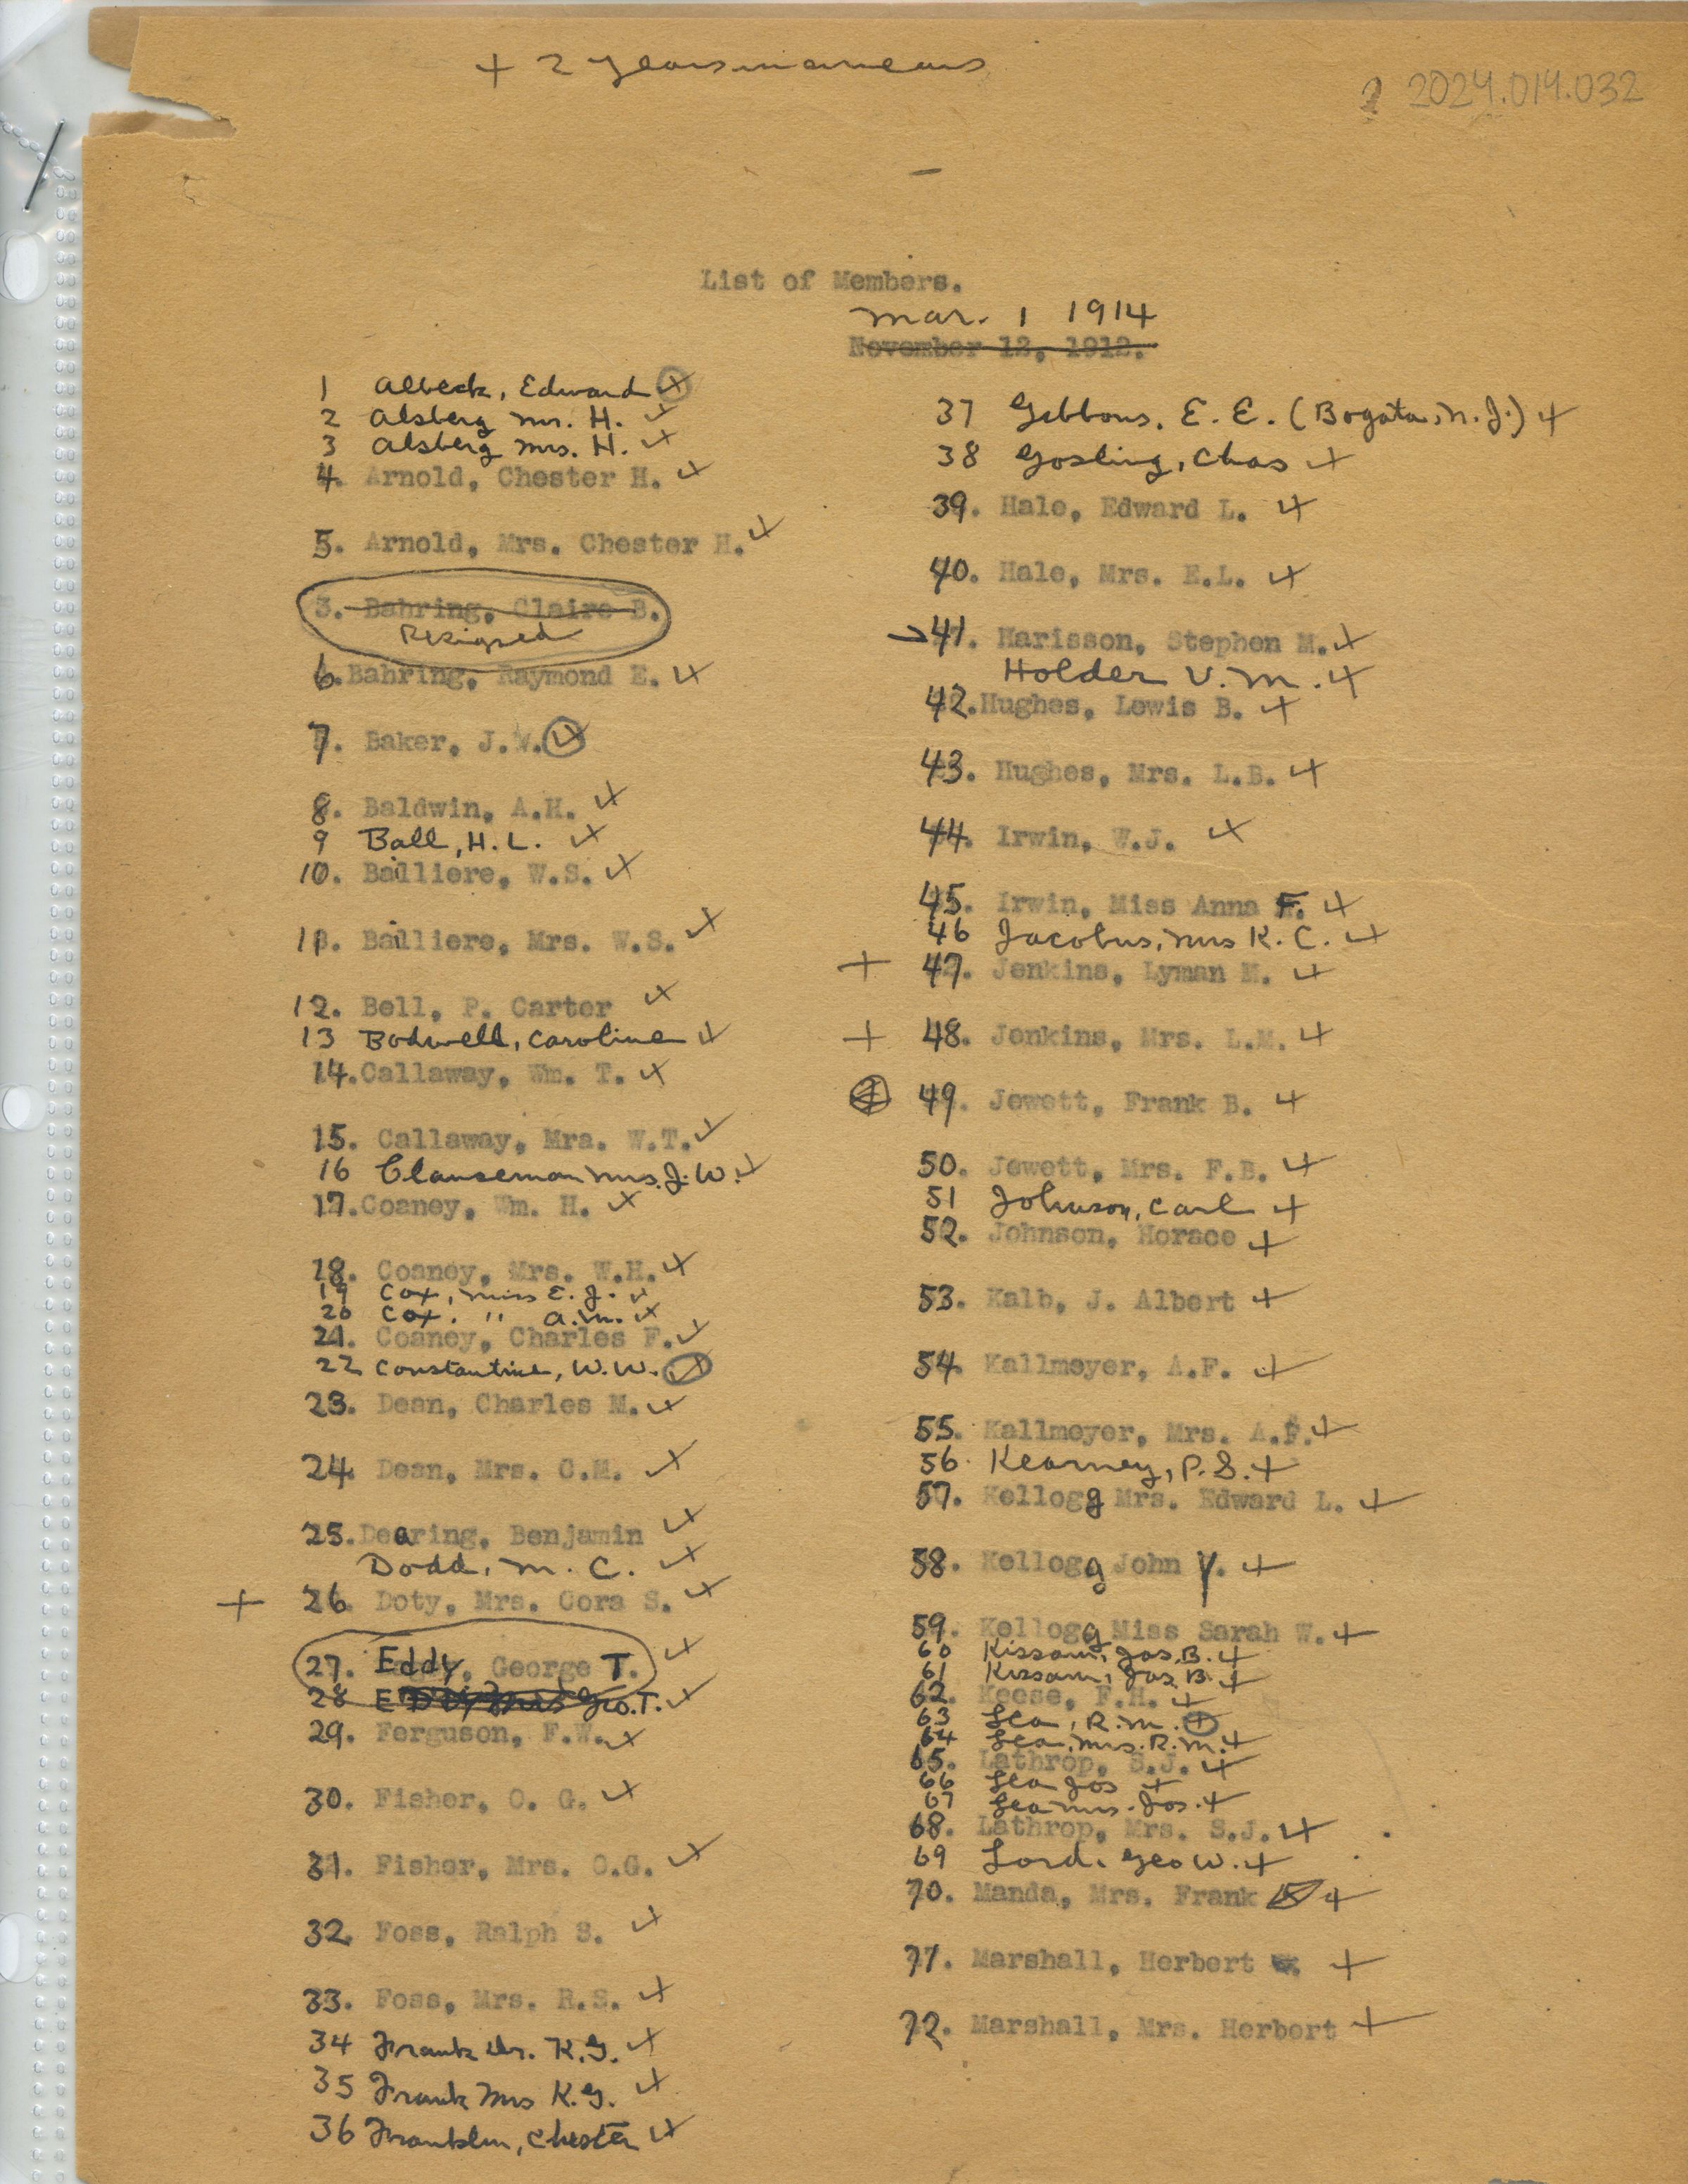 + 2 years in arrears
2024.014.032
List of Members.
Mar. 1 1914
November 12, 1912.
1 Albeck, Edward
2 Alsberg Mr. H.
3 Alsberg Mrs. H.
4. Arnold, Chester H.
5. Arnold, Mrs. Chester H.
3. Bahring, Claire B.
Resigned
6. Bahring, Raymond E.
7. Baker, J.W.
8. Baldwin, A.H.
9 Ball, H.L.
10. Bailliere, W.S.
11. Bailliere, Mrs. W.S.
12. Bell, P. Carter
13 Bodwell, Caroline
14. Callaway, Wm. T.
15. Callaway, Mrs. W.T.
16 Clauseman Mrs. J.W.
17. Coaney, Wm. H.
18. Coaney, Mrs. W.H.
19 Cox, Miss E.J.
20 Cox. " A.M.
21. Coaney, Charles F.
22 Constantine, W.W.
23. Dean, Charles M.
24. Dean, Mrs. C.M.
25. Dearing, Benjamin
Dodd, M.C.
+ 26. Doty, Mrs. Cora S.
27. Eddy, George T.
28 Eddy Mrs Geo.T.
29. Ferguson, F.W.
30. Fisher, O. G.
31. Fisher, Mrs. O.G.
32. Foss, Ralph S.
33. Foss, Mrs. R.S.
34 Frank Dr. K.G.
35 Frank Mrs K.G.
36 Franklin, Chester
37 Gibbons, E.E. (Bogata, N.J.)
38 Gosling, Chas
39. Hale, Edward L.
40. Hale, Mrs. E.L.
41. Harisson, Stephen M.
Holder V.M.
42. Hughes, Lewis B.
43. Hughes, Mrs. L.B.
44. Irwin, W.J.
45. Irwin, Miss Anna F.
46 Jacobus, Mrs K.C.
+ 47. Jenkins, Lyman M.
+ 48. Jenkins, Mrs. L.M.
49. Jewett, Frank B.
50. Jewett, Mrs. F.B.
51 Johnson, Carl
52. Johnson, Horace
53. Kalb, J. Albert
54 Kallmeyer, A.F.
55. Kallmeyer, Mrs. A.F.
56. Kearney, P.S.
57. Kellogg Mrs. Edward L.
58. Kellogg John Y.
59. Kellogg Miss Sarah W.
60 Kissam, Jos. B.
61 Kissam, Jos B.
62. Keese, F.H.
63 Lea, R.M.
64 Lea, Mrs. R.M.
65. Lathrop, S.J.
66 Lea Jos
67 Lea Mrs. Jos.
68. Lathrop, Mrs. S.J.
69 Lord. Geo W.
70. Manda, Mrs. Frank
71. Marshall, Herbert
72. Marshall, Mrs. Herbert